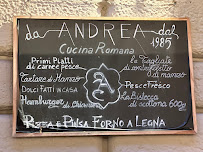 da ANDREA dal 1985
Cucina Romana
Primi Piatti
di carne e pesce
Tartare di Manzo
Dolci Fatti in Casa
Hamburger di Chianina
Le Tagliate
di controfiletto
di manzo
Pesce Fresco
La Bistecca
di scottona 600g
A
Pizza e Pinsa Forno a Legna